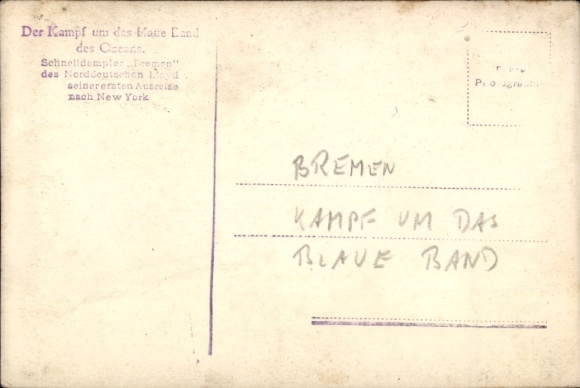 Der Kampf um das blaue Band
des Oceans.
Schnelldampfer „Bremen“
des Norddeutschen Lloyd
seiner ersten Ausreise
nach New York
BREMEN
KAMPF UM DAS
BLAUE BAND